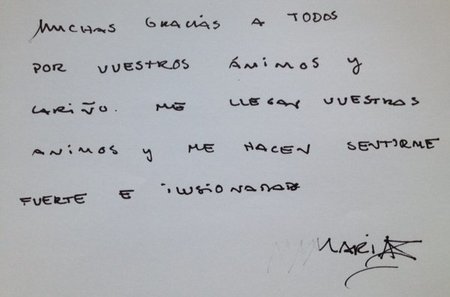 MUCHAS GRACIAS A TODOS
POR VUESTROS ÁNIMOS Y
CARIÑO. ME LLEGAN VUESTROS
ANIMOS Y ME HACEN SENTIRME
FUERTE E ILUSIONADA
MARIA